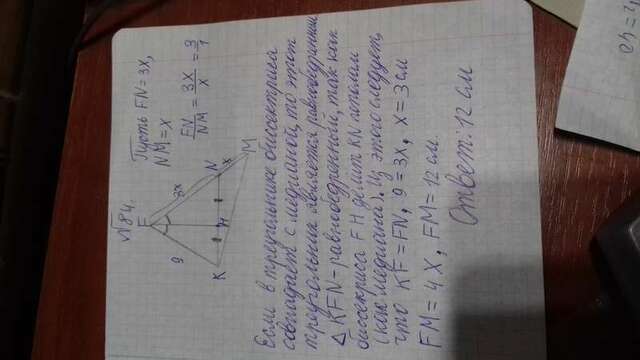 √184.
Пусть FN = 3x,
NM = x
FN/NM = 3x/x = 3/1
F
9
3x
N
x
M
K
H
Если в треугольнике биссектриса
совпадает с медианой, то этот
треугольник является равнобедренным
△ KFN - равнобедренный, так как
биссектриса FH делит KN пополам
(как медиана). Из этого следует,
что KF = FN, 9 = 3x, x = 3 см
FM = 4x, FM = 12 см.
Ответ: 12 см